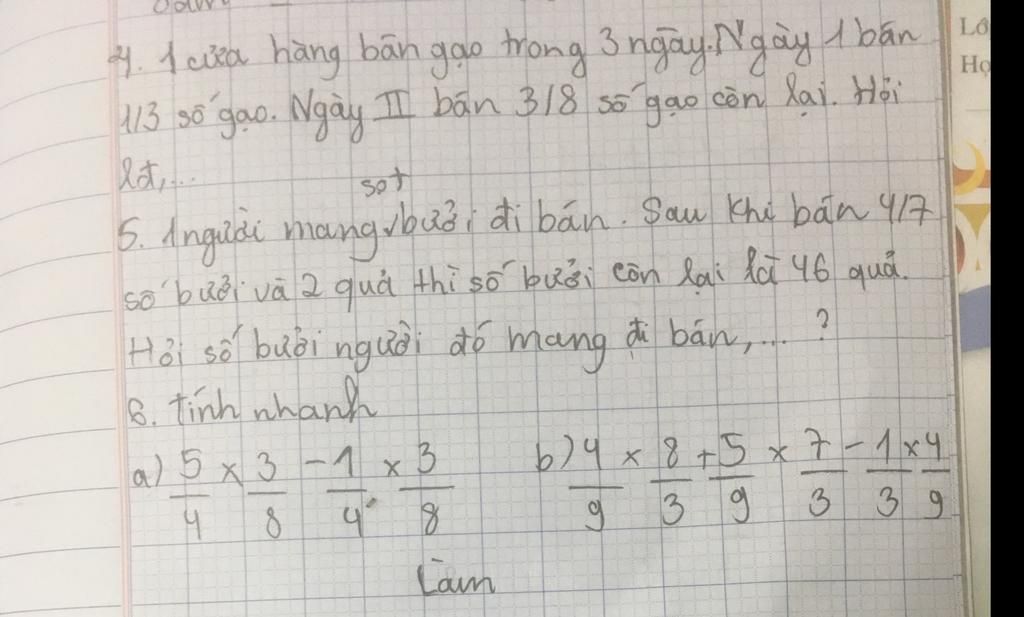 4. 1 cửa hàng bán gạo trong 3 ngày. Ngày 1 bán
1/3 số gạo. Ngày II bán 3/8 số gạo còn lại. Hỏi
lđ,...
sọt
5. 1 người mang √ bưởi đi bán. Sau khi bán 4/7
số bưởi và 2 quả thì số bưởi còn lại là 46 quả.
Hỏi số bưởi người đó mang đi bán,... ?
6. Tính nhanh
a) 5/4 × 3/8 - 1/4 × 3/8 b) 4/9 × 8/3 + 5/9 × 7/3 - 1/3 × 4/9
Làm
Lớ
Họ